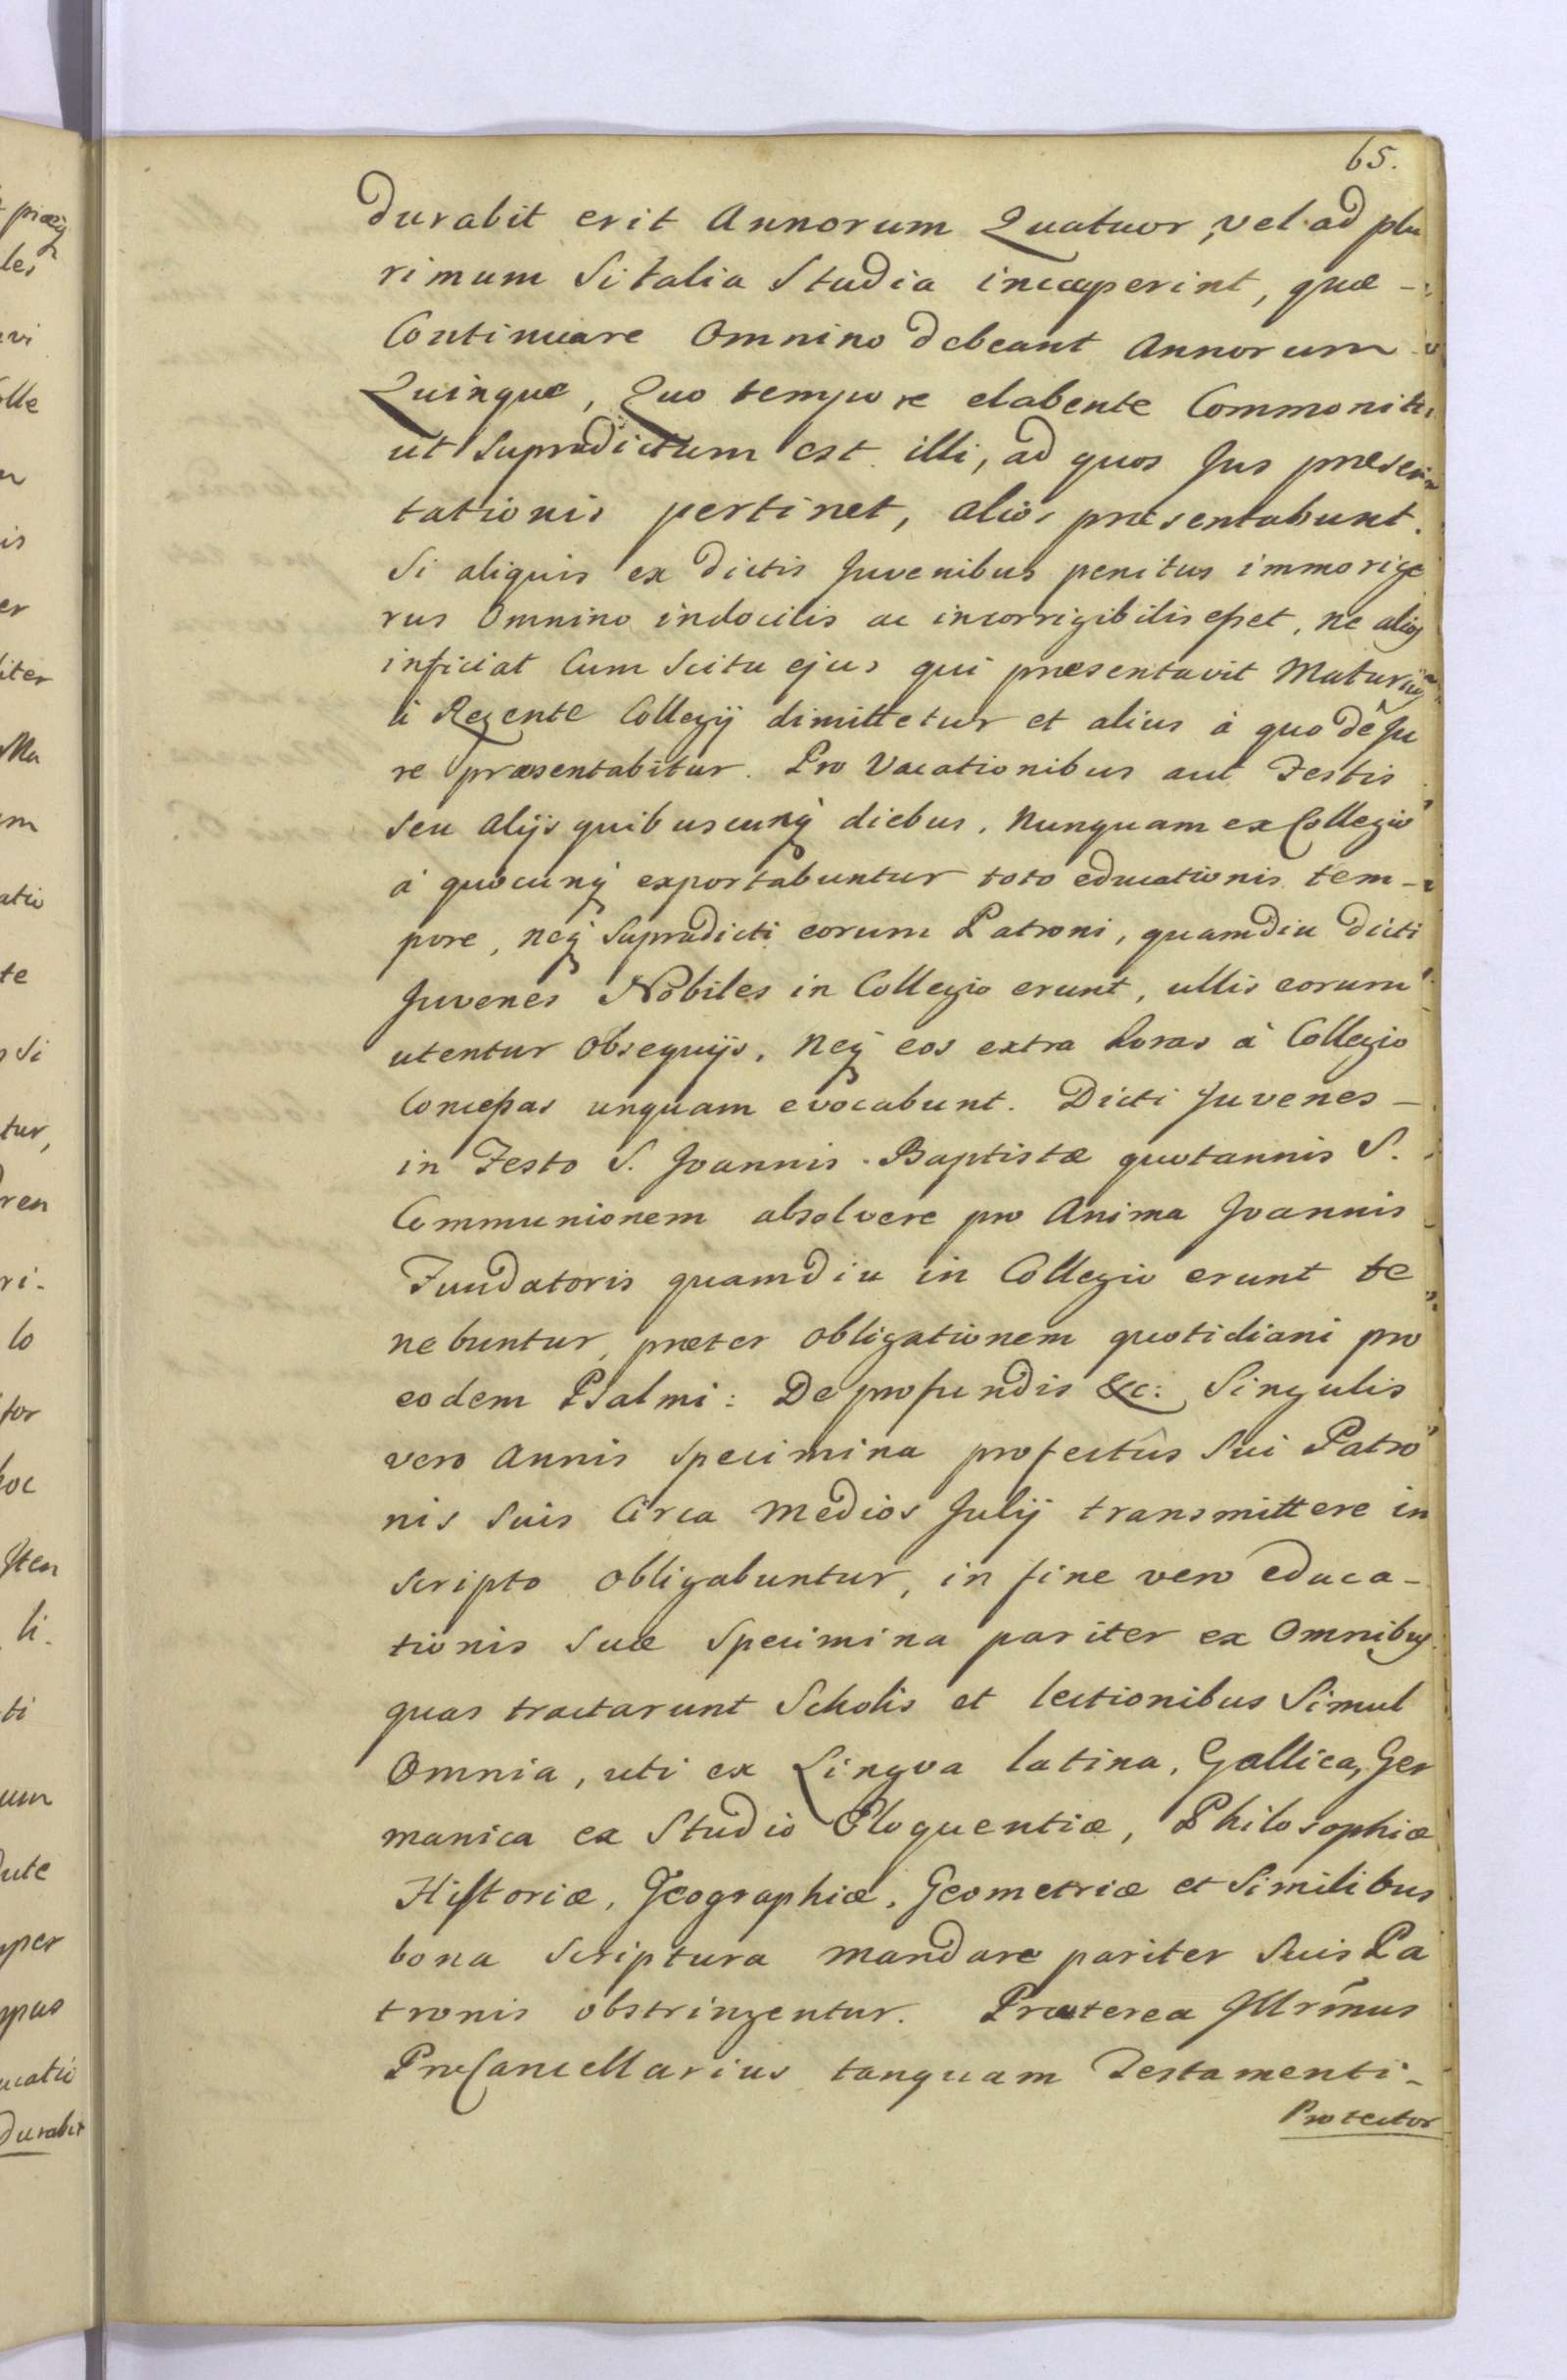 65.
durabit erit Annorum Quatuor, vel ad plu
rimum Si talia Studia incæperint, quæ -
Continuare Omnino debeant Annorum
Quinque, Quo tempore elabente Commoniti
ut Supradictum est illi, ad quos Jus præsen
tationis pertinet, alios præsentabunt.
Si aliquis ex dictis Juvenibus penitus immorige
rus Omnino indocilis ac incorrigibilis esset, ne alios
inficiat Cum Scitu ejus qui præsentavit Maturius
à Regente Collegij dimittetur et alius à quo de Ju
re præsentabitur. Pro Vacationibus aut Festis
seu alijs quibuscunq diebus, Nunquam ex Collegio
à quocunq exportabuntur toto educationis tem-
pore, neq Supradicti eorum Patroni, quamdiu dicti
Juvenes Nobiles in Collegio erunt, ullis eorum
utentur Obsequijs, Neq eos extra horas à Collegio
Concessas unquam evocabunt. Dicti Juvenes -
in Festo S. Joannis Baptistæ quotannis S.
Communionem absolvere pro Anima Joannis
Fundatoris quamdiu in Collegio erunt te
nebuntur, præter obligationem quotidiani pro
eodem Psalmi: De profundis &c: Singulis
vero Annis Specimina profectûs Sui Patro
nis Suis Circa Medios Julij transmittere in
scripto obligabuntur, in fine vero educa-
tionis Suæ Specimina pariter ex Omnibus
quas tractarunt Scholis et lectionibus Simul
Omnia, uti ex Lingva latina, Gallica, Ger
manica ex Studio Eloquentiæ, Philosophiæ
Historiæ, Geographiæ, Geometriæ et Similibus
bona Scriptura mandare pariter Suis Pa
tronis obstringentur. Præterea Jllrm̃us
PræCancellarius tanquam Testamenti -
Protector